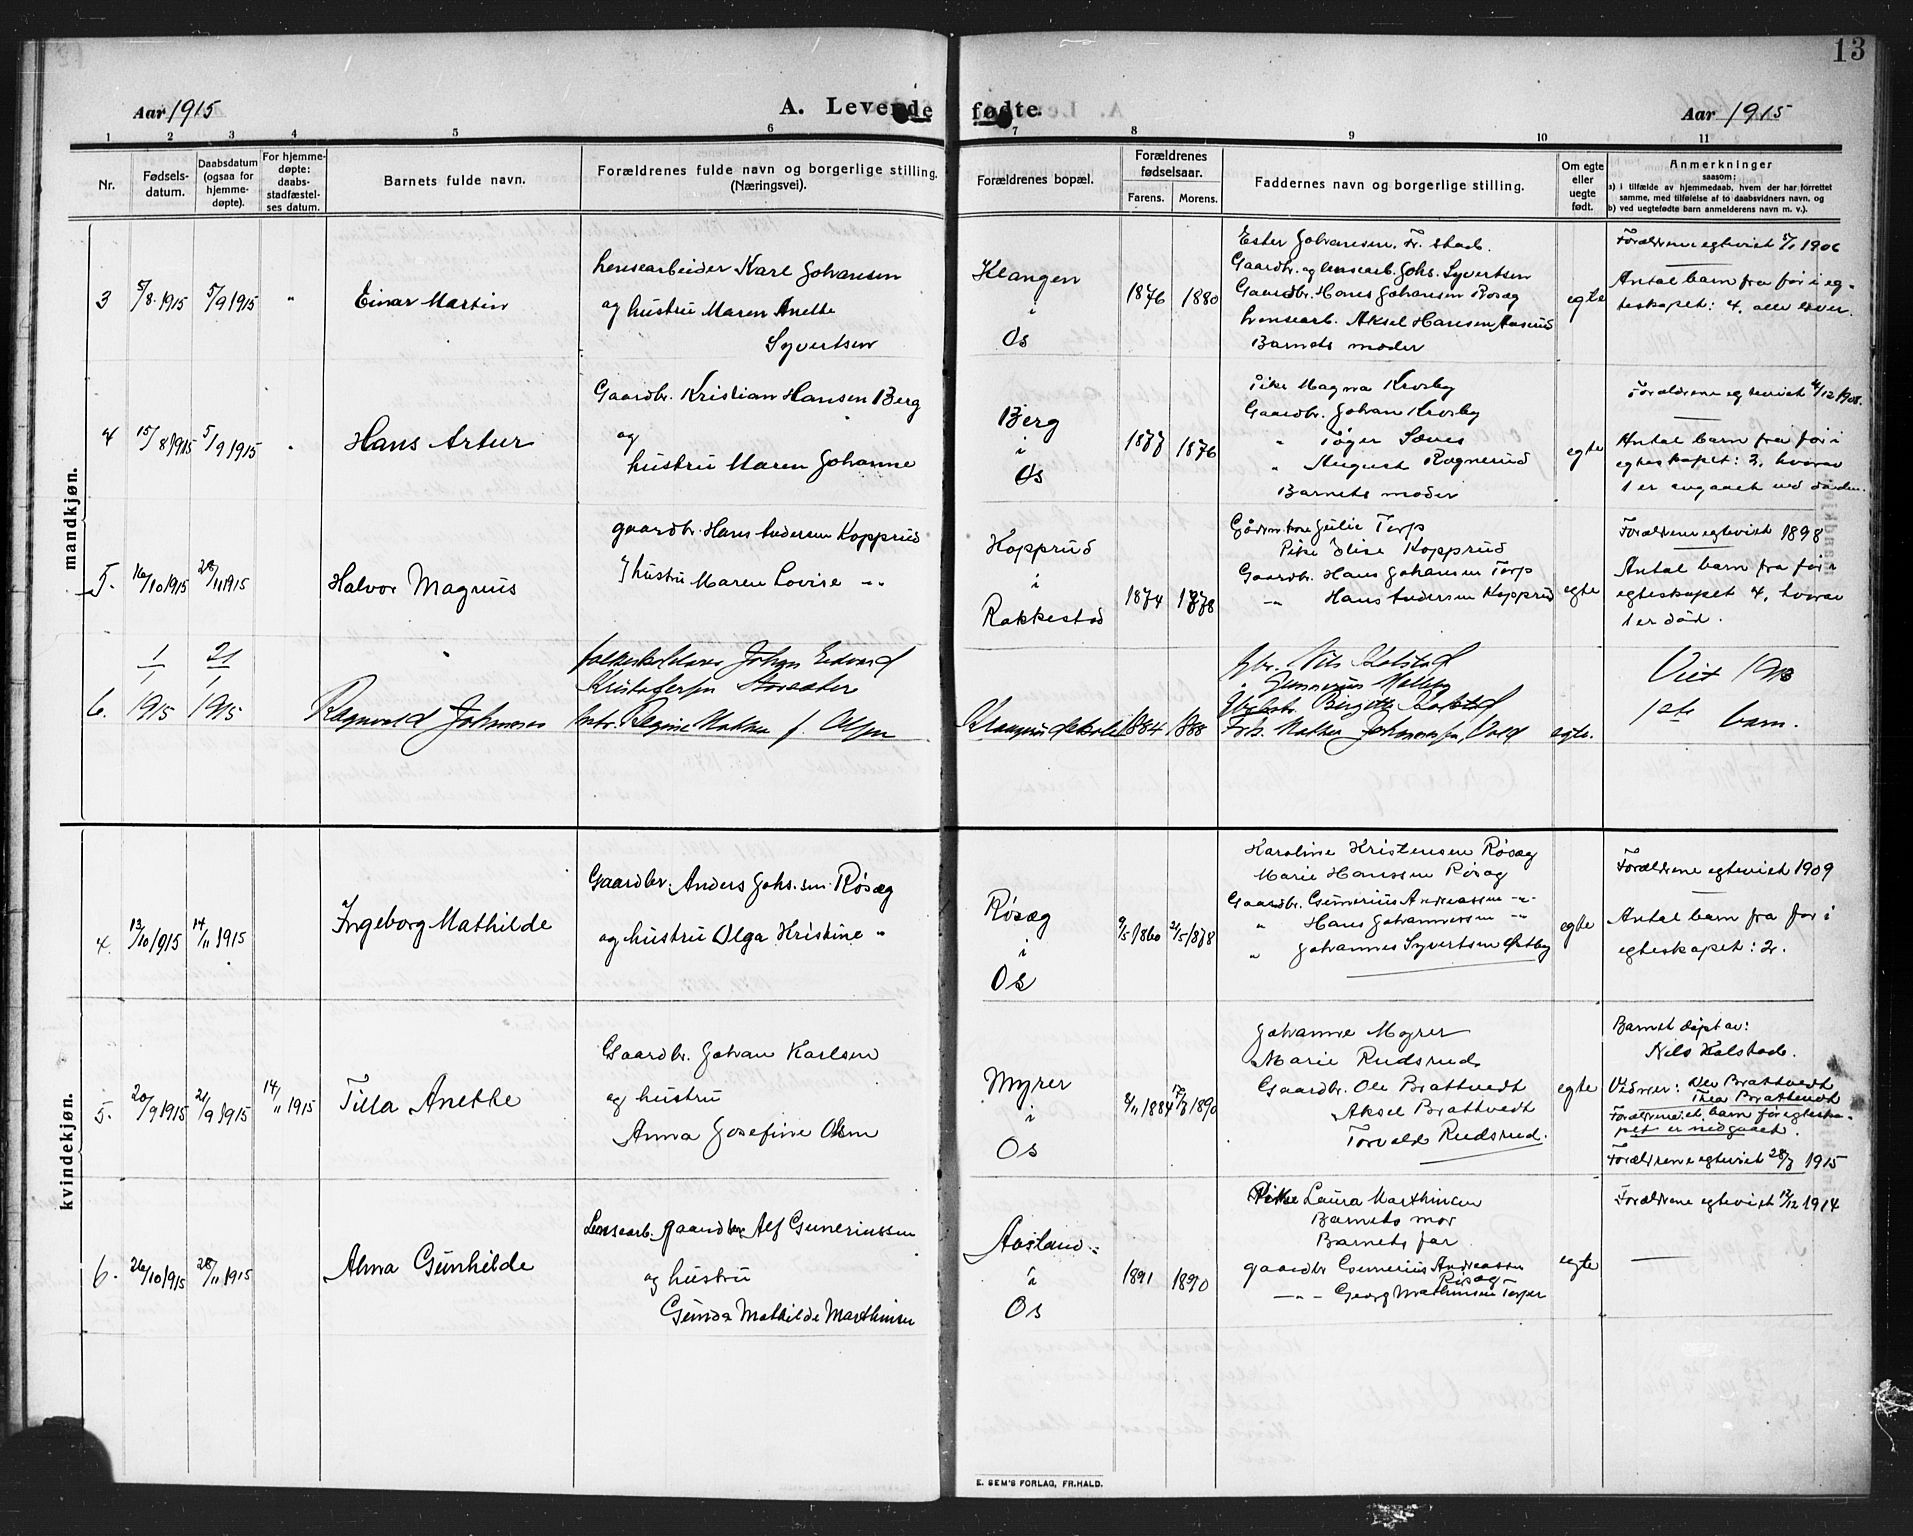 13
Aar 1915
A. Levende fødte.
Aar 1915
1 2 3 4 5 6 7 8 9 10 11
Nr.
Fødsels-
datum.
Daabsdatum
(ogsaa for
hjemme-
døpte).
For hjemme-
døpte:
daabs-
stadfæstel-
ses datum.
Barnets fulde navn.
Forældrenes fulde navn og borgerlige stilling.
(Næringsvei).
Forældrenes bopæl.
Forældrenes
fødselsaar.
Farens. Morens.
Faddernes navn og borgerlige stilling.
Om egte
eller
uegte
født.
Anmerkninger
saasom:
a) i tilfælde av hjemmedaab, hvem der har forrettet
samme, med tilføielse af to daabsvidners navn, og
b) ved uegtefødte barn anmelderens navn m. v.).
mandkjøn.
3
5/8 1915
5/9 1915
"
Einar Martin
Lensearbeider Karl Johansen
og hustru Maren Anette
Syvertsen
Klangen
i
Os
1876
1880
Ester Johansen. Fr. stad.
Gaardbr. og lensearb. Johs. Syvertsen
Gaardbr. Hans Johansen Røsæg
Lensearb. Aksel Hansen Aaserud
Barnets moder
egte
Forældrene egteviet 1906
Antal barn fra før i eg-
teskapet: 4, alle lever.
4
15/8 1915
5/9 1915
Hans Artur
Gaardbr. Kristian Hansen Berg
og
hustru Maren Johanne
Berg
i
Os
1877
1876
Pike Magna Krosby
Gaardbr. Johan Krosby
" August Rognerud
Barnets moder
egte
Forældrene egteviet 1908.
Antal barn fra før i
egteskapet: 2, hvorav
1 er avgaaet ved døden.
5.
16/10 1915
28/11 1915
Halvor Magnus
gaardbr. Hans Andersen Kopprud
hustru Maren Lovise -"-
Kopprud
i
Rakkestad
1874
1878
Julie Torp
Pike Elise Kopprud
Gaardbr. Hans Johansen Torp
-"- Hans Andersen Kopprud
egte
Forældrene egteviet 1898
Antal barn fra før i
egteskapet 4, hvorav
1 er død.
6.
1/1 1915
21/1 1915
Ragnvald Johannes
Johan Edvard
Kristofersen
Regine f. Olsen
1884
1888
Gbr. Nils Kolstad
Gunnerius
Birgitte Kolstad
egte.
Viet 1913
1ste barn.
kvindekjøn.
4.
13/10 1915
14/11 1915
Ingeborg Mathilde
Gaardbr. Anders Johs.sen Røsæg
og hustru Olga Kristine "
Røsæg
i
Os
9/5 1860
2/5 1878
Karoline Kristensen Røsæg
Marie Hanssen Røsæg
Gaardbr. Gunerius Andreassen -"-
" Hans Johannessen -"-
" Johannes Syvertsen Østby
egte
Forældrene egteviet 1909
Antal barn fra før i
egteskapet: 2.
5.
20/9 1915
21/9 1915
14/11 1915
Tilla Anethe
Gaardbr. Johan Karlsen
og hustru
Anna Josefine Olsen
Myrer
i
Os
8/11 1884
1890
Johanne Myrer
Marie Rudsrud
Gaardbr. Ole Brattvedt
Aksel Brattvedt
Torvald Rudsrud.
egte
Barnet døpt av:
Nils Kolstad.
Vidner: Ole Brattvedt
Thea Brattvedt
Forældrene egteviet 28/3 1915
6.
26/10 1915
28/11 1915
Alma Gunhilde
Lensearb. gaardbr. Alf Guneriussen
og hustru
Gunda Mathilde Marthinsen
Aasland
i
Os
1891
1890
Pike Laura Marthinsen
Barnets mor
Barnets far
gaardbr Gunerius Andreassen
Røsæg
-"- Georg Mathinsen Torper
egte
Forældrene egteviet 12/12 1914
E. SEM'S FORLAG, FR.HALD.